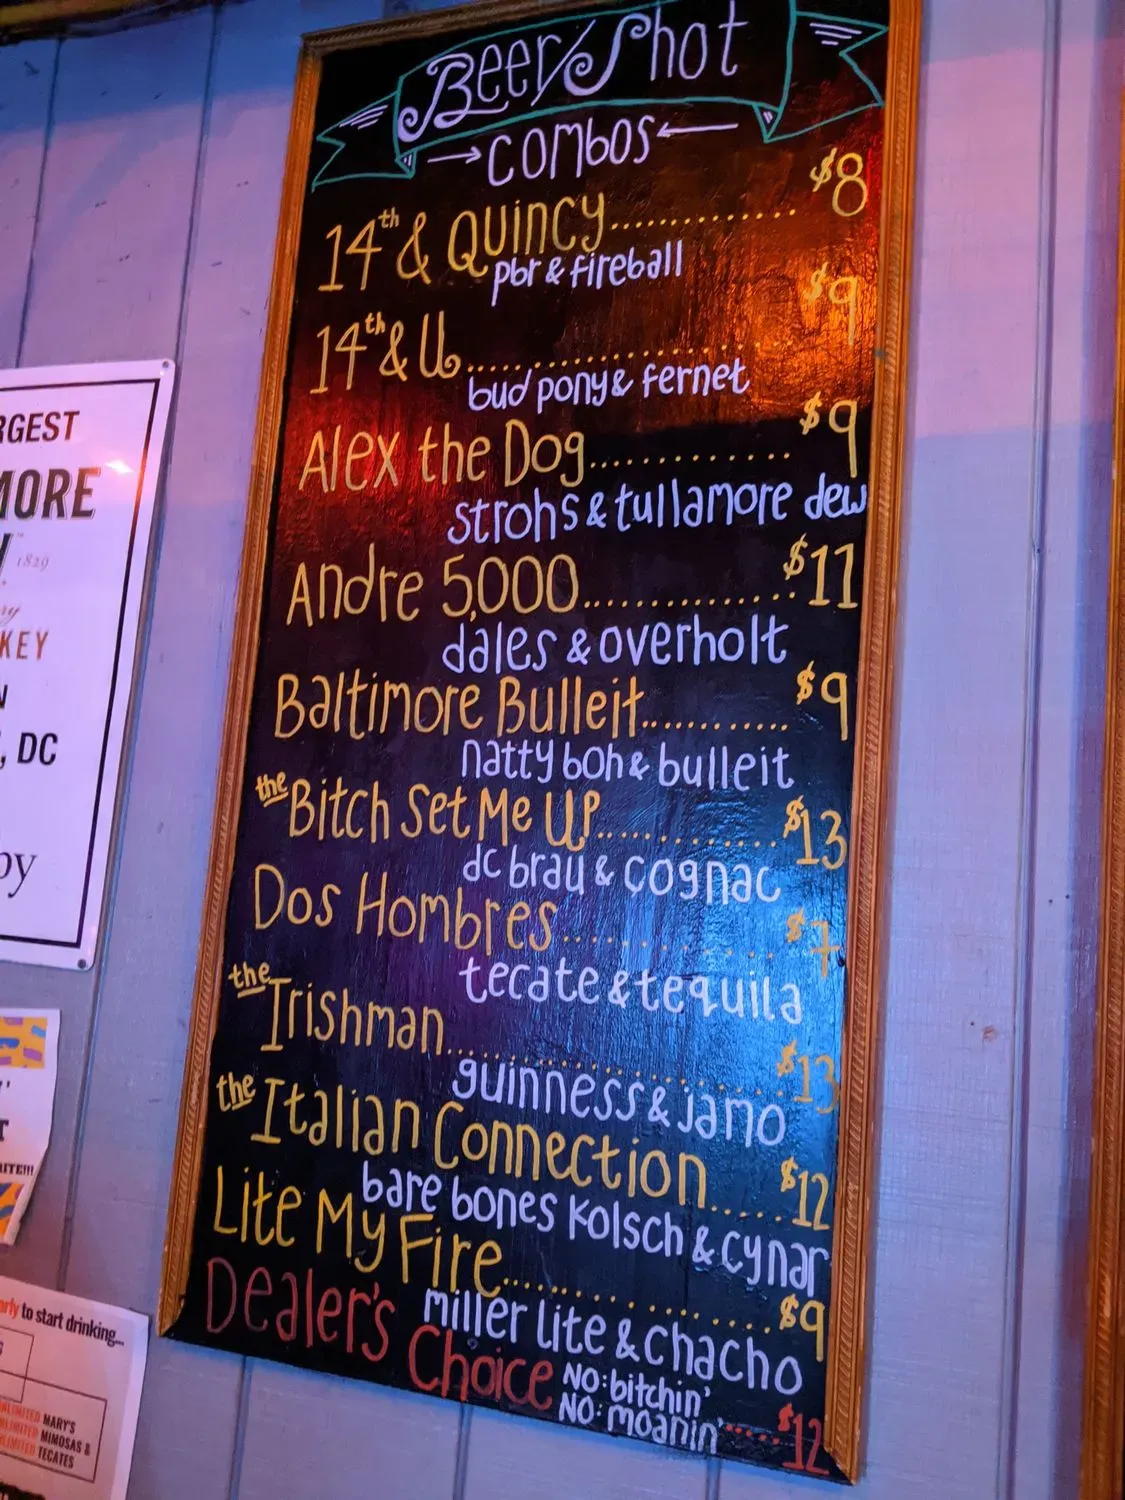 Beer/Shot
combos
14th & Quincy............. $8
pbr & fireball
14th & U..................... $9
bud pony & fernet
Alex the Dog............. $9
strohs & tullamore dew
Andre 5,000.............. $11
dales & overholt
Baltimore Bulleit........... $9
natty boh & bulleit
the Bitch Set Me UP........... $13
dc brau & cognac
Dos Hombres........... $7
tecate & tequila
the Irishman..................... $13
guinness & jamo
the Italian Connection...... $12
bare bones kolsch & cynar
Lite My Fire............... $9
miller lite & chacho
Dealer's Choice
NO: bitchin'
NO: moanin'...... $12
RGEST
MORE
1829
KEY
N
, DC
by
RITE!!!
to start drinking...
MARY'S
UNLIMITED MIMOSAS &
UNLIMITED TECATES